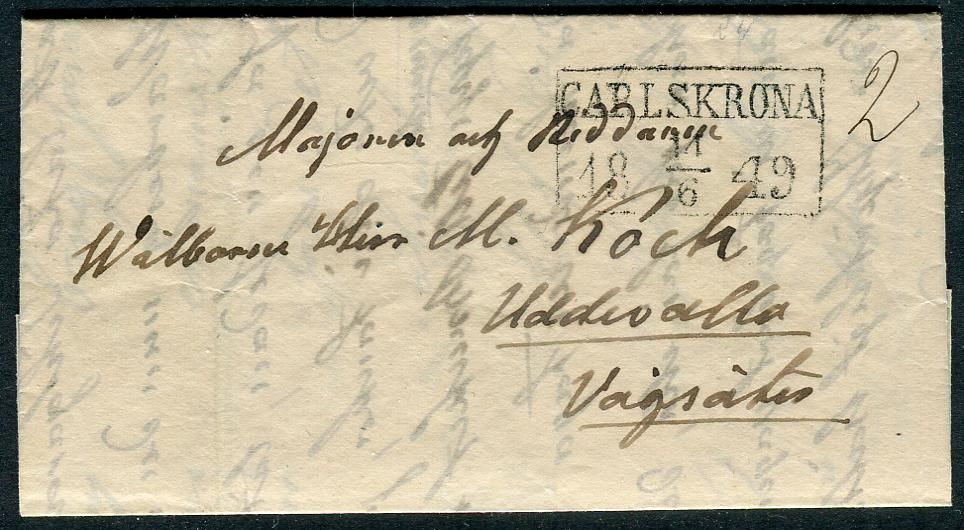 CARLSKRONA
18 11/6 49
2
Majoren och Riddaren
Wälborne Herr M. Koch
Uddevalla
Vägsäter